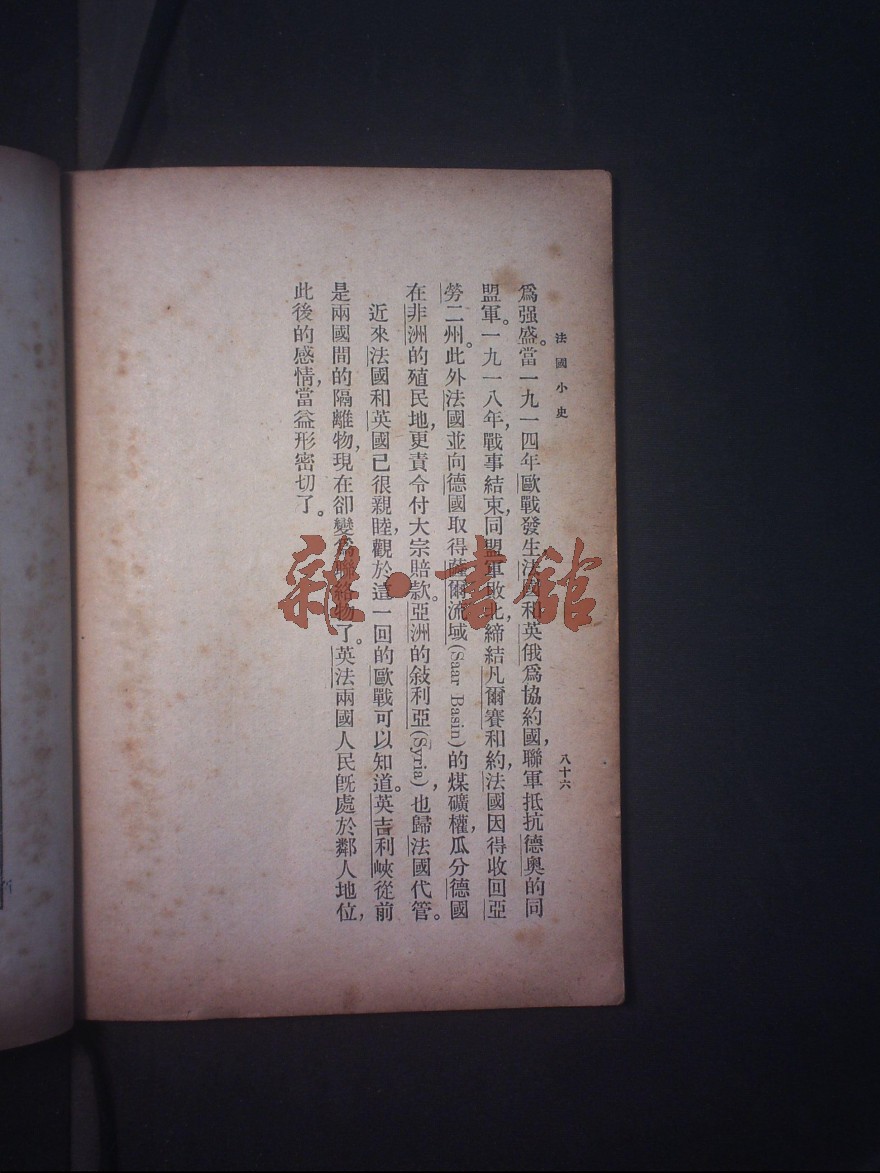 法國小史
八十六
爲强盛。當一九一四年歐戰發生，法國和英俄爲協約國，聯軍抵抗德奧的同
盟軍。一九一八年，戰事結束，同盟軍敗北，締結凡爾賽和約，法國因得收回亞
勞二州。此外法國並向德國取得薩爾流域(Saar Basin)的煤礦權，瓜分德國
在非洲的殖民地，更責令付大宗賠款。亞洲的敍利亞(Syria)，也歸法國代管。
近來法國和英國已很親睦，觀於這一回的歐戰可以知道。英吉利峽從前
是兩國間的隔離物，現在卻變爲聯絡物了。英法兩國人民旣處於鄰人地位，
此後的感情，當益形密切了。
雜·書館